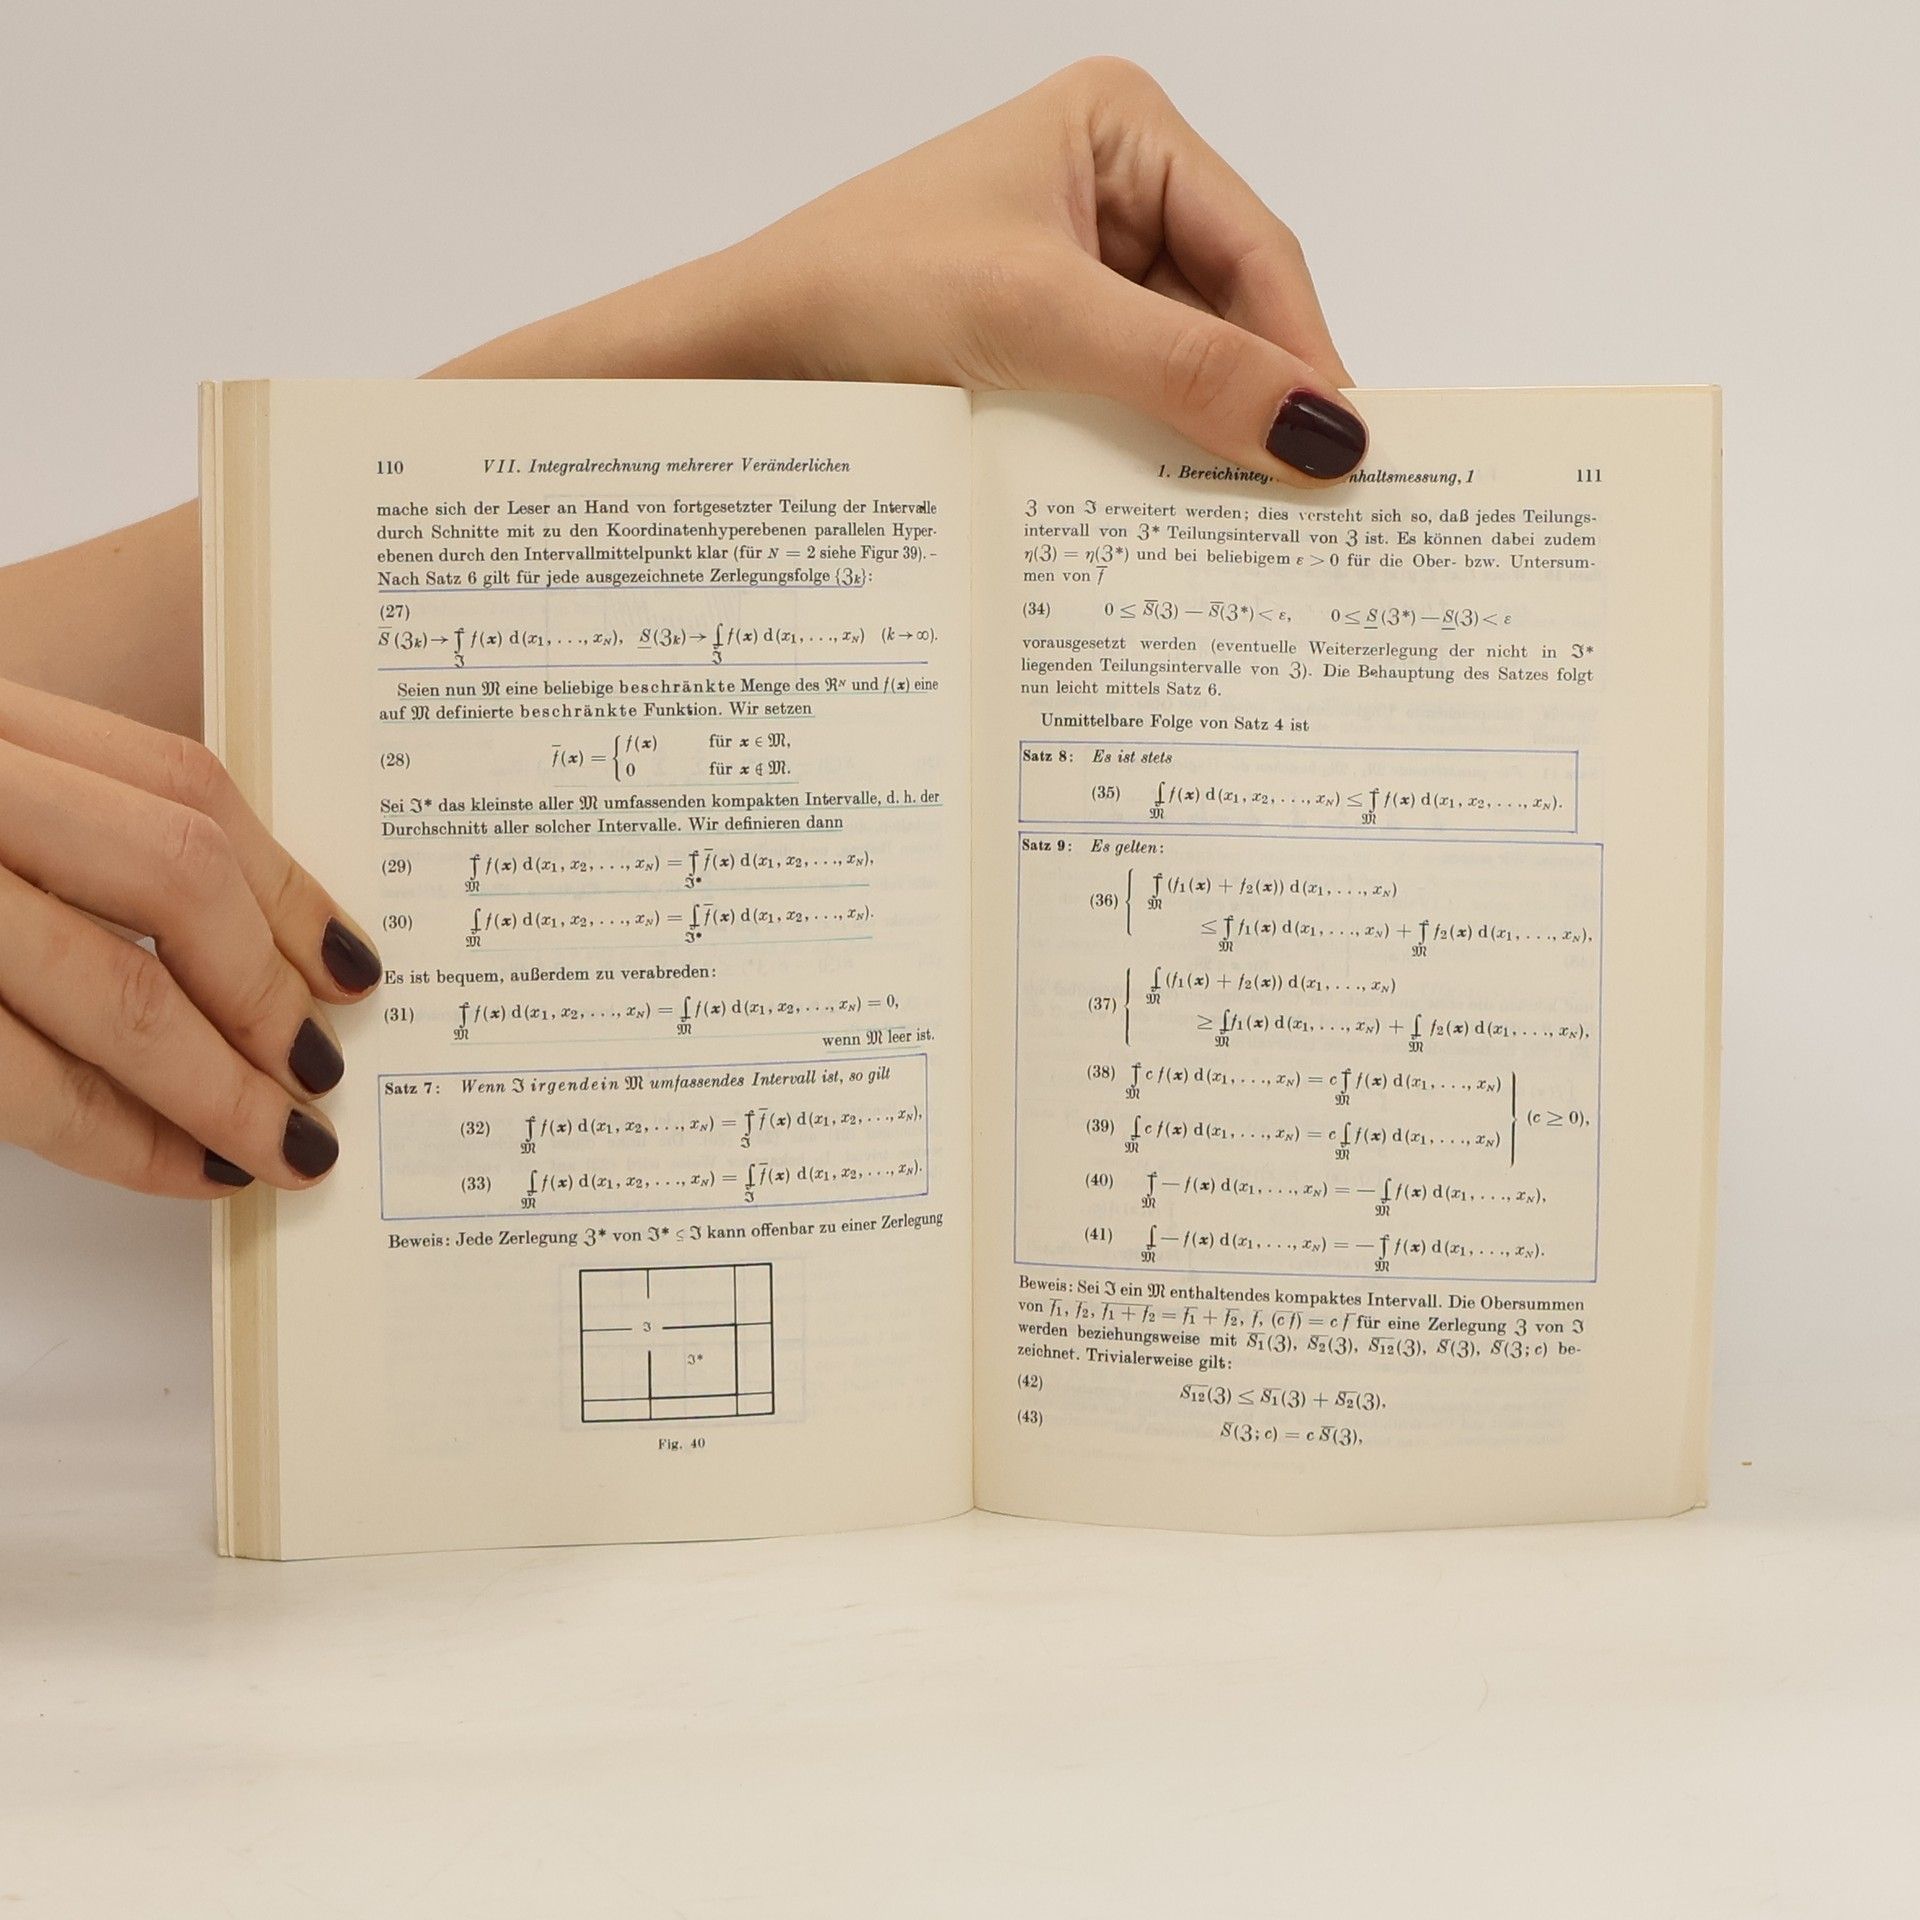 110 VII. Integralrechnung mehrerer Veränderlichen
mache sich der Leser an Hand von fortgesetzter Teilung der Intervalle
durch Schnitte mit zu den Koordinatenhyperebenen parallelen Hyper-
ebenen durch den Intervallmittelpunkt klar (für N = 2 siehe Figur 39). –
Nach Satz 6 gilt für jede ausgezeichnete Zerlegungsfolge {ℨₖ}:
(27)
S̅(ℨₖ) → ∫̅_ℑ f(x) d(x₁, . . ., x_N), S̲(ℨₖ) → ∫̲_ℑ f(x) d(x₁, . . ., x_N) (k → ∞).
Seien nun 𝔐 eine beliebige beschränkte Menge des ℜᴺ und f(x) eine
auf 𝔐 definierte beschränkte Funktion. Wir setzen
(28) f̅(x) = { f(x) für x ∈ 𝔐,
0 für x ∉ 𝔐.
Sei ℑ* das kleinste aller 𝔐 umfassenden kompakten Intervalle, d. h. der
Durchschnitt aller solcher Intervalle. Wir definieren dann
(29) ∫̅_𝔐 f(x) d(x₁, x₂, . . ., x_N) = ∫̅_ℑ* f̅(x) d(x₁, x₂, . . ., x_N),
(30) ∫̲_𝔐 f(x) d(x₁, x₂, . . ., x_N) = ∫̲_ℑ* f̅(x) d(x₁, x₂, . . ., x_N).
Es ist bequem, außerdem zu verabreden:
(31) ∫̅_𝔐 f(x) d(x₁, x₂, . . ., x_N) = ∫̲_𝔐 f(x) d(x₁, x₂, . . ., x_N) = 0,
wenn 𝔐 leer ist.
Satz 7: Wenn ℑ irgendein 𝔐 umfassendes Intervall ist, so gilt
(32) ∫̅_𝔐 f(x) d(x₁, x₂, . . ., x_N) = ∫̅_ℑ f̅(x) d(x₁, x₂, . . ., x_N),
(33) ∫̲_𝔐 f(x) d(x₁, x₂, . . ., x_N) = ∫̲_ℑ f̅(x) d(x₁, x₂, . . ., x_N).
Beweis: Jede Zerlegung ℨ* von ℑ* ≤ ℑ kann offenbar zu einer Zerlegung
ℑ
ℑ*
Fig. 40
1. Bereichinteg nhaltsmessung, 1 111
ℨ von ℑ erweitert werden; dies versteht sich so, daß jedes Teilungs-
intervall von ℨ* Teilungsintervall von ℨ ist. Es können dabei zudem
η(ℨ) = η(ℨ*) und bei beliebigem ε > 0 für die Ober- bzw. Untersum-
men von f̅
(34) 0 ≤ S̅(ℨ) — S̅(ℨ*) < ε, 0 ≤ S̲(ℨ*) — S̲(ℨ) < ε
vorausgesetzt werden (eventuelle Weiterzerlegung der nicht in ℑ*
liegenden Teilungsintervalle von ℨ). Die Behauptung des Satzes folgt
nun leicht mittels Satz 6.
Unmittelbare Folge von Satz 4 ist
Satz 8: Es ist stets
(35) ∫̲_𝔐 f(x) d(x₁, x₂, . . ., x_N) ≤ ∫̅_𝔐 f(x) d(x₁, x₂, . . ., x_N).
Satz 9: Es gelten:
(36) { ∫̅_𝔐 (f₁(x) + f₂(x)) d(x₁, . . ., x_N)
≤ ∫̅_𝔐 f₁(x) d(x₁, . . ., x_N) + ∫̅_𝔐 f₂(x) d(x₁, . . ., x_N),
(37) { ∫̲_𝔐 (f₁(x) + f₂(x)) d(x₁, . . ., x_N)
≥ ∫̲_𝔐 f₁(x) d(x₁, . . ., x_N) + ∫̲_𝔐 f₂(x) d(x₁, . . ., x_N),
(38) ∫̅_𝔐 c f(x) d(x₁, . . ., x_N) = c ∫̅_𝔐 f(x) d(x₁, . . ., x_N)
(39) ∫̲_𝔐 c f(x) d(x₁, . . ., x_N) = c ∫̲_𝔐 f(x) d(x₁, . . ., x_N) } (c ≥ 0),
(40) ∫̅_𝔐 — f(x) d(x₁, . . ., x_N) = — ∫̲_𝔐 f(x) d(x₁, . . ., x_N),
(41) ∫̲_𝔐 — f(x) d(x₁, . . ., x_N) = — ∫̅_𝔐 f(x) d(x₁, . . ., x_N).
Beweis: Sei ℑ ein 𝔐 enthaltendes kompaktes Intervall. Die Obersummen
von f̅₁, f̅₂, f̅₁̅ ̅+̅ ̅f̅₂̅ = f̅₁ + f̅₂, f̅, (̅c̅ ̅f̅)̅ = c f̅ für eine Zerlegung ℨ von ℑ
werden beziehungsweise mit S̅₁(ℨ), S̅₂(ℨ), S̅₁₂(ℨ), S̅(ℨ), S̅(ℨ; c) be-
zeichnet. Trivialerweise gilt:
(42) S̅₁₂(ℨ) ≤ S̅₁(ℨ) + S̅₂(ℨ),
(43) S̅(ℨ; c) = c S̅(ℨ),